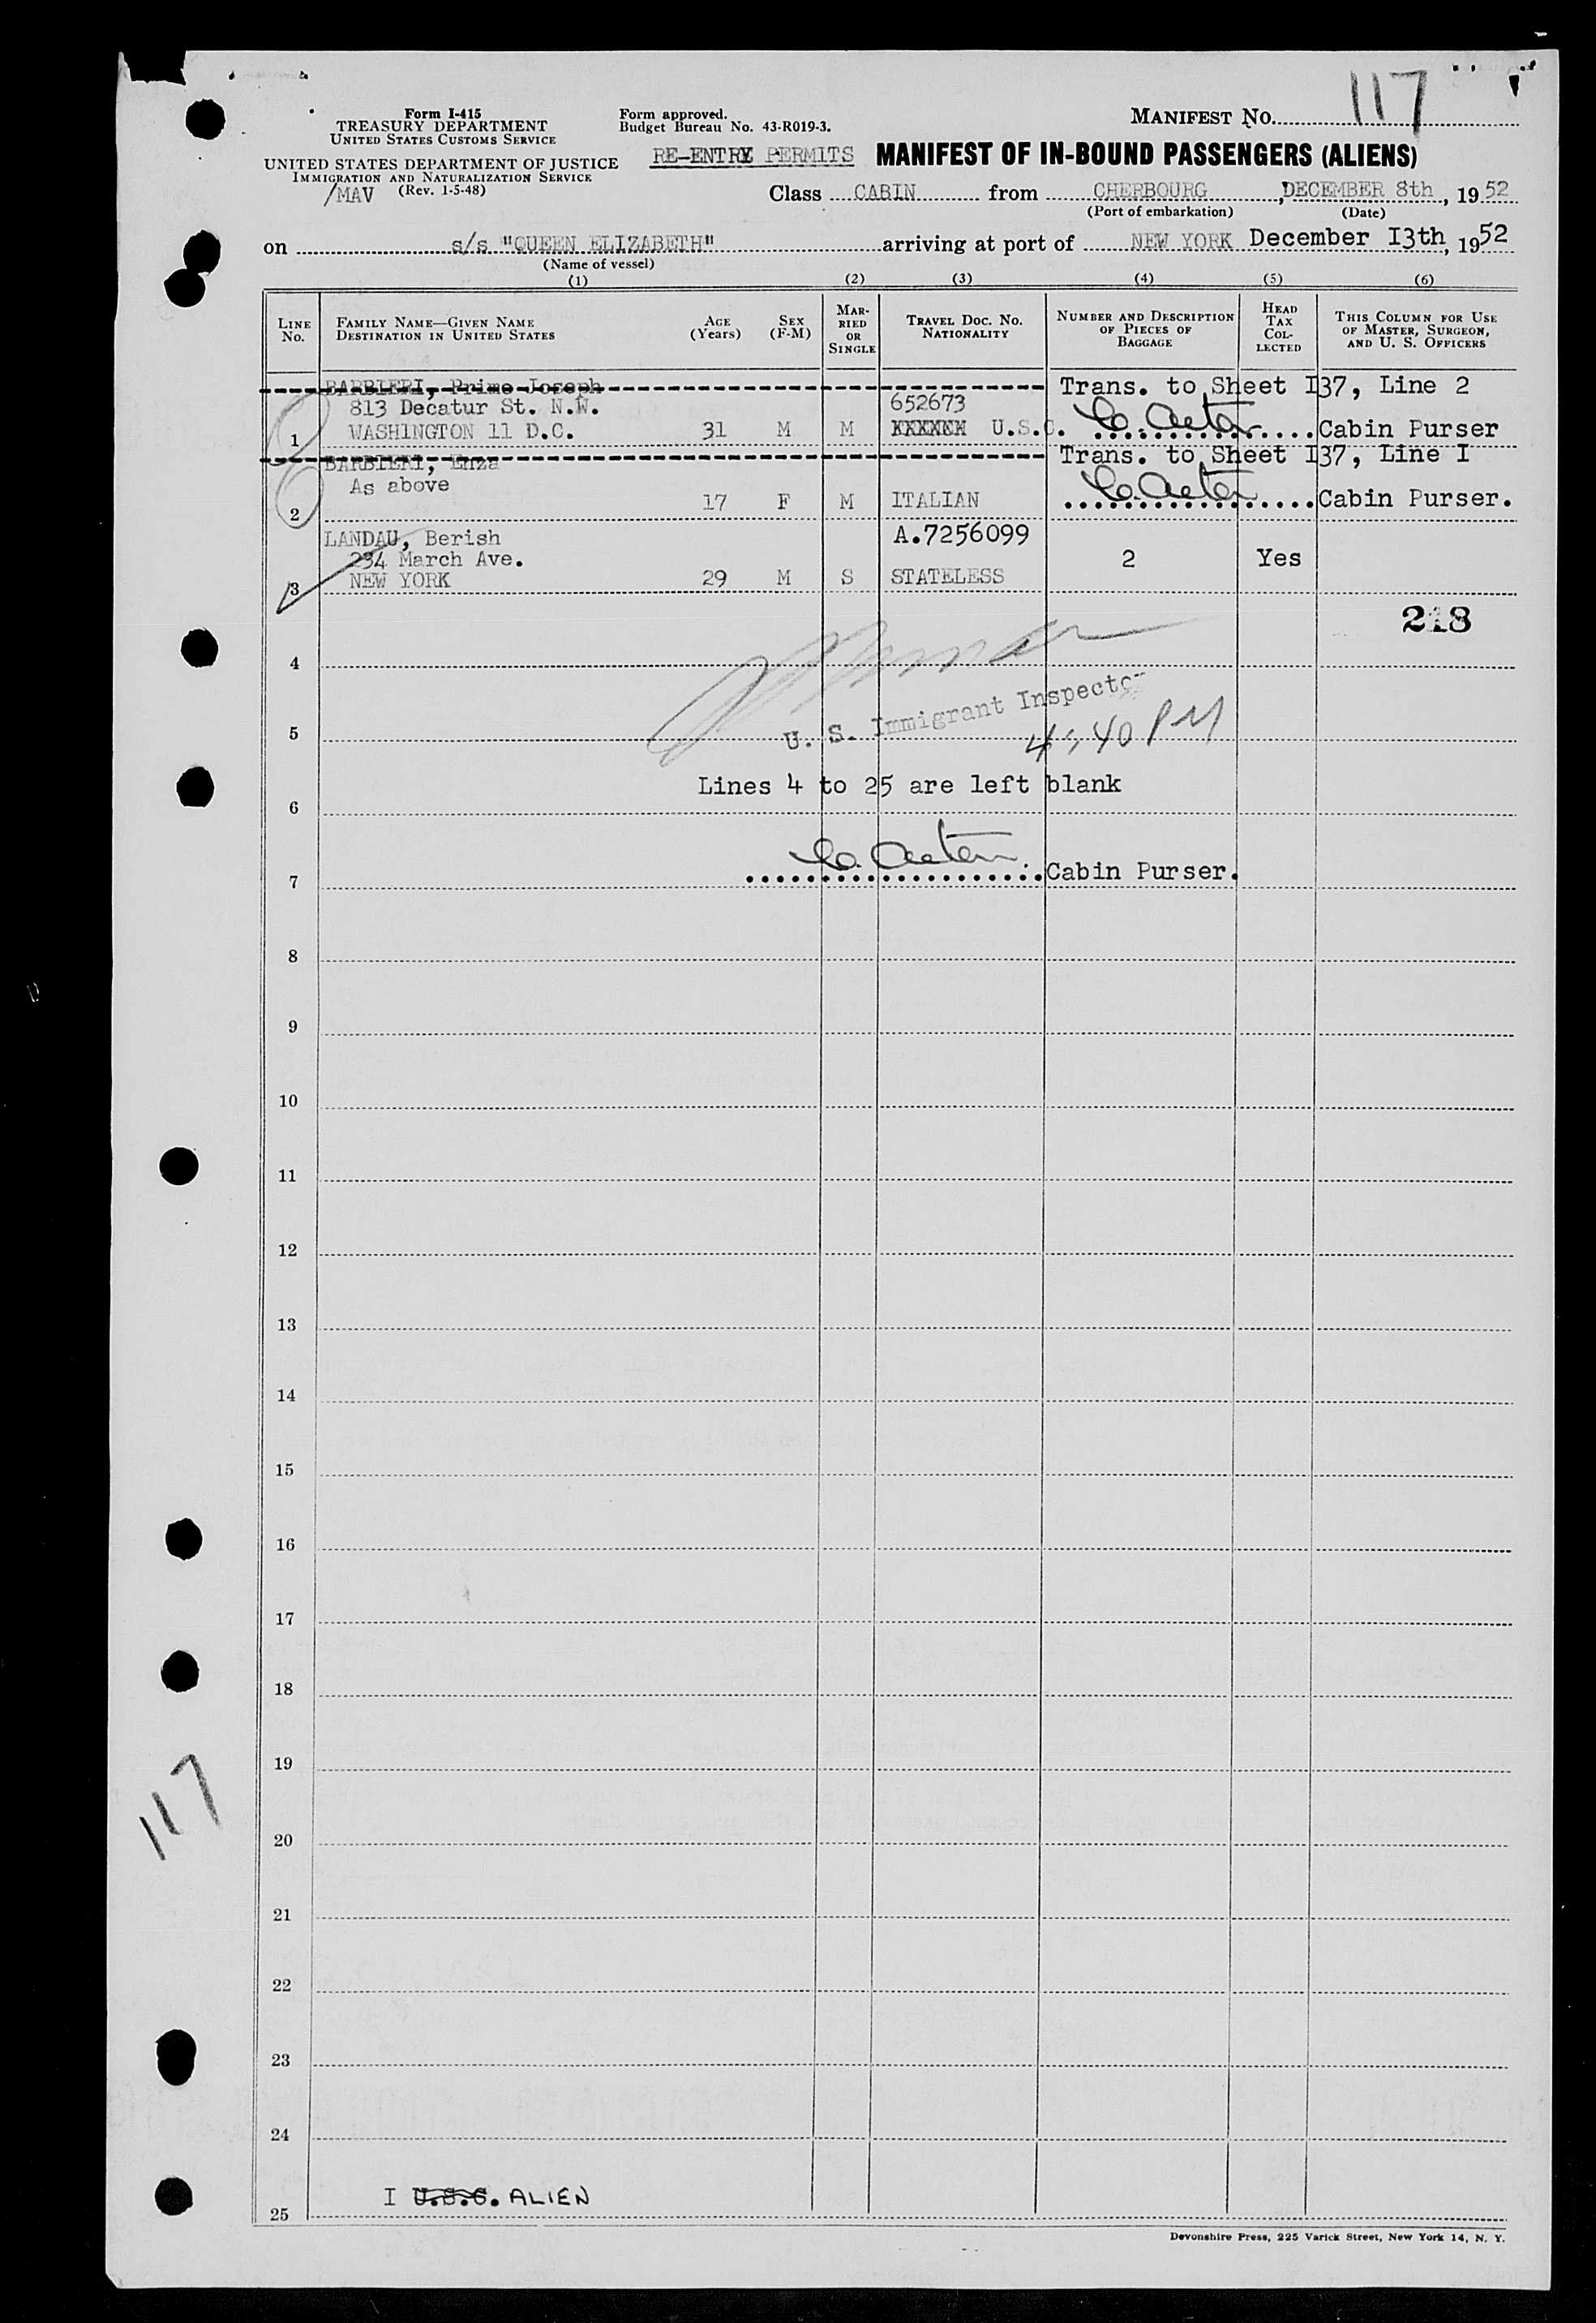 117
Form I-415
TREASURY DEPARTMENT
UNITED STATES CUSTOMS SERVICE
UNITED STATES DEPARTMENT OF JUSTICE
IMMIGRATION AND NATURALIZATION SERVICE
/MAV (Rev. 1-5-48)
Form approved.
Budget Bureau No. 43-R019-3.
MANIFEST NO.
RE-ENTRY PERMITS MANIFEST OF IN-BOUND PASSENGERS (ALIENS)
Class CABIN from CHERBOURG, DECEMBER 8th, 1952
(Port of embarkation) (Date)
on s/s "QUEEN ELIZABETH" arriving at port of NEW YORK December I3th, 1952
(Name of vessel)
(1) (2) (3) (4) (5) (6)
LINE NO.
FAMILY NAME—GIVEN NAME
DESTINATION IN UNITED STATES
AGE (Years)
SEX (F-M)
MARRIED OR SINGLE
TRAVEL DOC. NO.
NATIONALITY
NUMBER AND DESCRIPTION OF PIECES OF BAGGAGE
HEAD TAX COLLECTED
THIS COLUMN FOR USE OF MASTER, SURGEON, AND U. S. OFFICERS
BARBIERI, Primo Joseph Trans. to Sheet I37, Line 2
813 Decatur St. N.W. 652673
1 WASHINGTON 11 D.C. 31 M M XXXXXX U.S.C. Cabin Purser
BARBIERI, Enza Trans. to Sheet I37, Line I
As above
2 17 F M ITALIAN Cabin Purser.
LANDAU, Berish A.7256099
234 March Ave. 2 Yes
3 NEW YORK 29 M S STATELESS
218
4
U. S. Immigrant Inspector
5 4:40 PM
Lines 4 to 25 are left blank
6
7 Cabin Purser.
8
9
10
11
12
13
14
15
16
17
18
19
117
20
21
22
23
24
I U.S.C. ALIEN
25
Devonshire Press, 225 Varick Street, New York 14, N. Y.